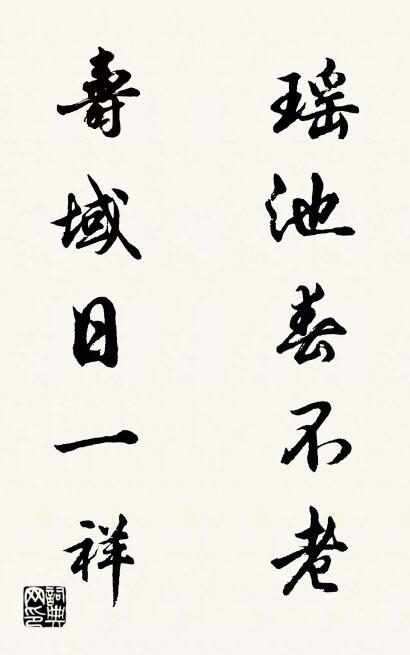 瑶池春不老
壽域日一祥
詞典
网印